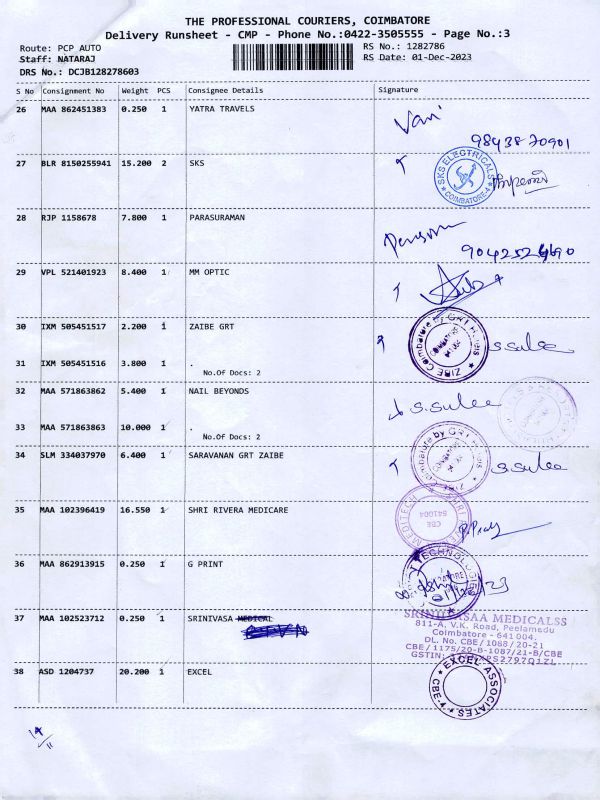 THE PROFESSIONAL COURIERS, COIMBATORE
Delivery Runsheet - CMP - Phone No.:0422-3505555 - Page No.:3
Route: PCP AUTO RS No.: 1282786
Staff: NATARAJ RS Date: 01-Dec-2023
DRS No.: DCJB128278603
S No Consignment No Weight PCS Consignee Details Signature
26 MAA 862451383 0.250 1 YATRA TRAVELS Vani
9843870901
27 BLR 8150255941 15.200 2 SKS SKS ELECTRICALS COIMBATORE-4
28 RJP 1158678 7.800 1 PARASURAMAN
29 VPL 521401923 8.400 1 MM OPTIC
30 IXM 505451517 2.200 1 ZAIBE GRT ZIBE Coimbatore by GRT Hotels S.Sulee
31 IXM 505451516 3.800 1 .
No.Of Docs: 2
32 MAA 571863862 5.400 1 NAIL BEYONDS S.Sulee
33 MAA 571863863 10.000 1 .
No.Of Docs: 2
34 SLM 334037970 6.400 1 SARAVANAN GRT ZAIBE S.Sulee
35 MAA 102396419 16.550 1 SHRI RIVERA MEDICARE CBE 641004
36 MAA 862913915 0.250 1 G PRINT
37 MAA 102523712 0.250 1 SRINIVASA MEDICAL
SRINIVASAA MEDICALSS
811-A, V.K. Road, Peelamedu
Coimbatore - 641004.
DL. No. CBE/1088/20-21
CBE/1175/20-B-1087/21-B/CBE
GSTIN:
38 ASD 1204737 20.200 1 EXCEL EXCEL ASSOCIATES CBE-4
14/11